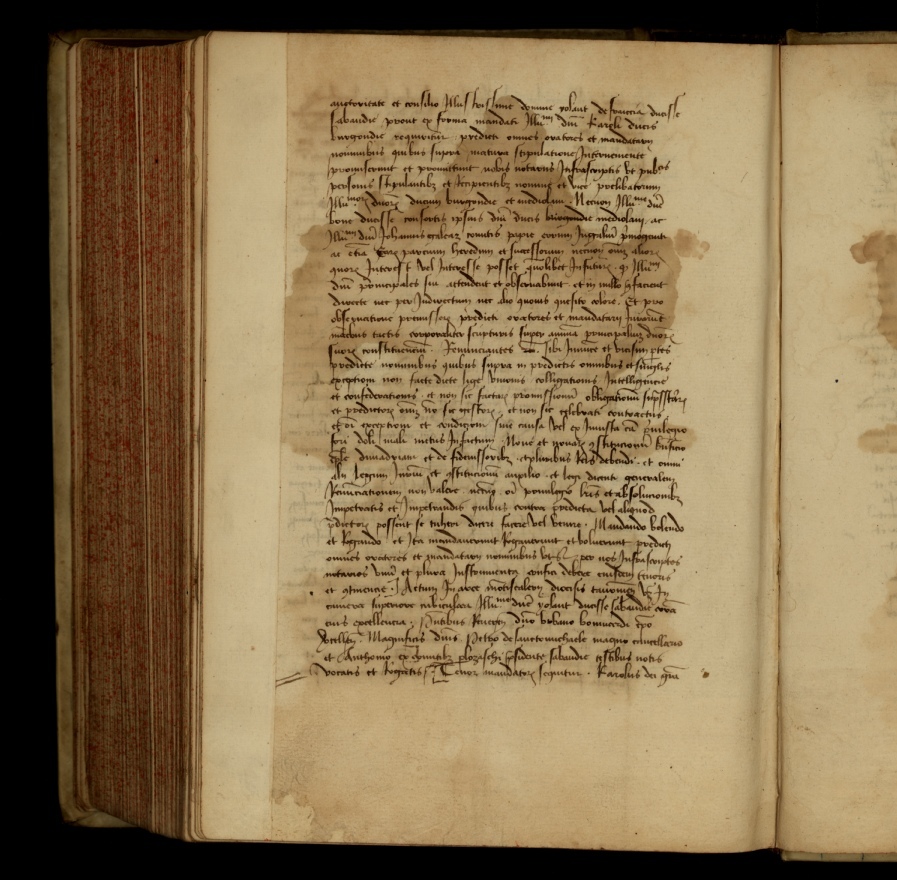 auctoritate et consilio Illustrissime domine yolant de francia ducisse
sabaudie prout ex forma mandati Illu.mi dni Karoli ducis
burgondie requiritur predicti omnes oratores et mandatarij
nominibus quibus supra mutua stipulatione Interueniente
promiserunt et promittunt nobis notarijs Infrascriptis vt publicis
personis stipulantibz et recipientibz nomine et vice prelibatorum
Illu.morum duorum ducum burgondie et mediolani. Necnon Illu.me dne
bone ducisse consortis ipsius dni ducis mediolani, ac
Illu.mi dni Johannis galeaz comitis papie eorum Jugalium primogeniti
ac etia parcium heredum et successorum necnon omium aliorum
quorum Interest vel Interesse posset quolibet Infuturum. q Illu.mi
dni principales sui attendent et obseruabunt. et in nullo contrafacient
directe nec per Indirectum nec alio quouis quesito colore. Et pro
obseruatione premissorum predicti oratores et mandatarij Jurarunt
manibus tactis corporaliter scripturis super anima principalium duorum
suorum constituentium. Renunciantes sibi Inuicem et vicissim ptes
predicte nominibus quibus supra in predictis omnibus et singulis
exceptioni non facte dicte lige vnionis colligationis Intelligencie
et confederationis. et non sic factarum promissionum obligationum
et predictorum omium non sic gestorum, et non sic celebrati contractus
et omi exceptioni et condicioni sine causa vel ex Iniusta causa priuilegio
fori doli mali metus Infactum. Noue et nouarum constitutionum beneficio
epistole diui adriani et de fideiussoribz et pluribus Reis debendi. et omni
alij Legum Iurium et constitutionum auxilio. et legi dicenti generalem
Renunciationem non valere. necnon omi priuilegio et absolucionibz
Impetratis et Impetrandis quibus contra predicta vel aliquod
predictorum possent se tuheri dicere facere vel venire. Mandando volendo
et Rogando et Ita mandauerunt Rogauerunt et voluerunt predicti
omnes oratores et mandatarij nominibus per nos Infrascriptos
notarios vnum et plura Instrumenta confici debere eiusdem tenoris
et continencie. Actum In arce montiscalerij diocesis taurinensis In
camera superiore cubiculari Illu.me dne yolant ducisse sabaudie coram
eius excellencia. Presentibus Reuerendo dno vrbano boniuerdi epo
vercellensi. Magnificis dnis. Petro de sanctomichaele magno cancellario
et Anthonio ex plozaschi presidente sabaudie testibus notis
vocatis et Rogatis. Tenor mandatorum sequitur. Karolus dei gracia